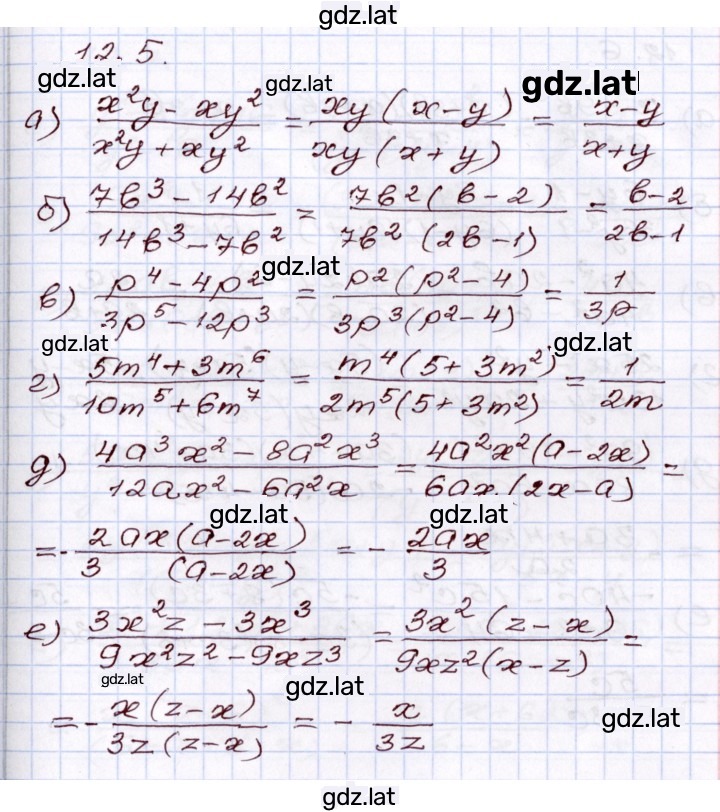 gdz.lat
12.5.
gdz.lat gdz.lat gdz.lat
а) (x²y - xy²)/(x²y + xy²) = (xy(x-y))/(xy(x+y)) = (x-y)/(x+y)
б) (7в³ - 14в²)/(14в³ - 7в²) = (7в²(в-2))/(7в²(2в-1)) = (в-2)/(2в-1)
gdz.lat
в) (p⁴ - 4p²)/(3p⁵ - 12p³) = (p²(p²-4))/(3p³(p²-4)) = 1/(3p)
gdz.lat gdz.lat
г) (5m⁴ + 3m⁶)/(10m⁵ + 6m⁷) = (m⁴(5 + 3m²))/(2m⁵(5 + 3m²)) = 1/(2m)
д) (4a³x² - 8a²x³)/(12ax² - 6a²x) = (4a²x²(a-2x))/(6ax.(2x-a)) =
gdz.lat gdz.lat
= - (2ax(a-2x))/(3 (a-2x)) = - (2ax)/3
е) (3x²z - 3x³)/(9x²z² - 9xz³) = (3x²(z-x))/(9xz²(x-z)) =
gdz.lat gdz.lat
= - (x(z-x))/(3z(z-x)) = - x/(3z)
gdz.lat
gdz.lat